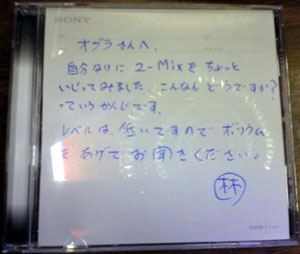 SONY
オグラさんへ.
自分なりに 2-Mixをちょっと
いじってみました. こんなんどうですか?
っていうかんじです.
レベルは 低いですので ボリウム
をあげて お聞きください。
林